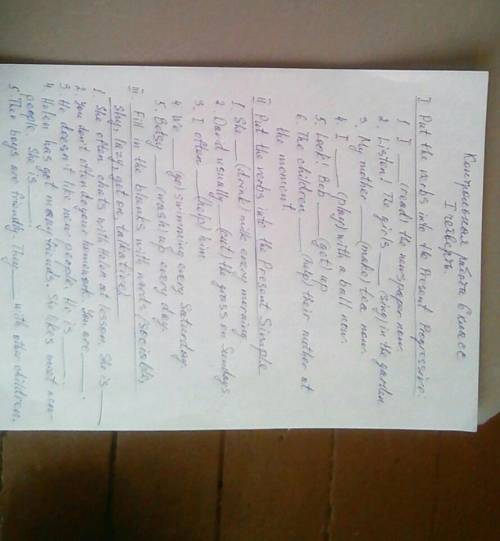 Контрольная работа 6 класс
I четверть.
I Put the verbs into the Present Progressive.
1. I ___ (read) the newspaper now.
2. Listen! The girls ___ (sing) in the garden.
3. My mother ___ (make) tea now.
4. I ___ (play) with a ball now.
5. Look! Bob ___ (get) up.
6. The children ___ (help) their mother at
the moment.
II Put the verbs into the Present Simple
1. She ___ (drink) milk every morning
2. David usually ___ (cut) the grass on Sundays
3. I often ___ (help) him.
4. We ___ (go) swimming every Saturday
5. Betsy ___ (wash) up every day.
III Fill in the blanks with words (sociable,
shy, lazy, get on, talkative)
1. She often chats with her at lesson. She is ___
2. You don't often do your homework. You are ___.
3. He doesn't like new people. He is ___.
4. Helen has got many friends. She likes meet new
people. She is ___
5. The boys are friendly. They ___ with other children.